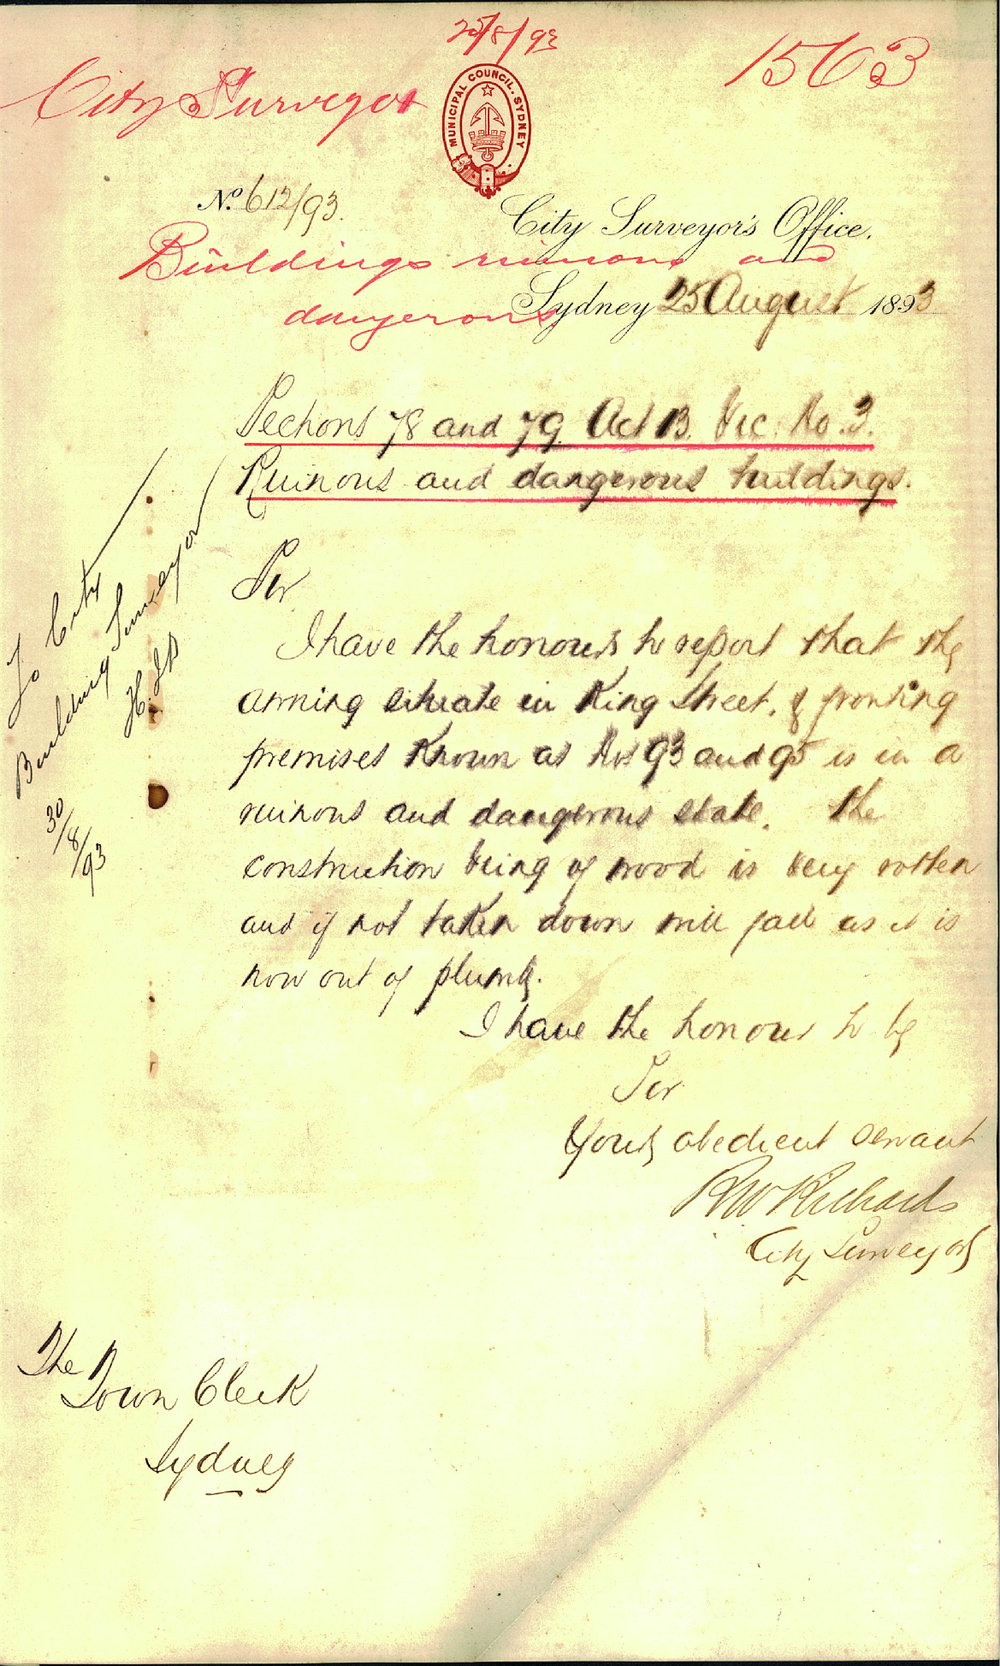 25/8/93
1563
City Surveyor
MUNICIPAL COUNCIL. SYDNEY
No. 612/93.
City Surveyor's Office,
Buildings ruinous and
dangerous
Sydney 25 August 1893
Sections 78 and 79 Act 13. Vic. No. 3.
Ruinous and dangerous buildings.
To City
Building Surveyor
30/8/93
Sir
I have the honour to report that the
awning situate in King Street, & fronting
premises known as Nos 93 and 95 is in a
ruinous and dangerous state. the
construction being of wood is very rotten
and if not taken down will fall as it is
now out of plumb.
I have the honour to be
Sir
Your obedient servant
RW Richards
City Surveyor
The
Town Clerk
Sydney